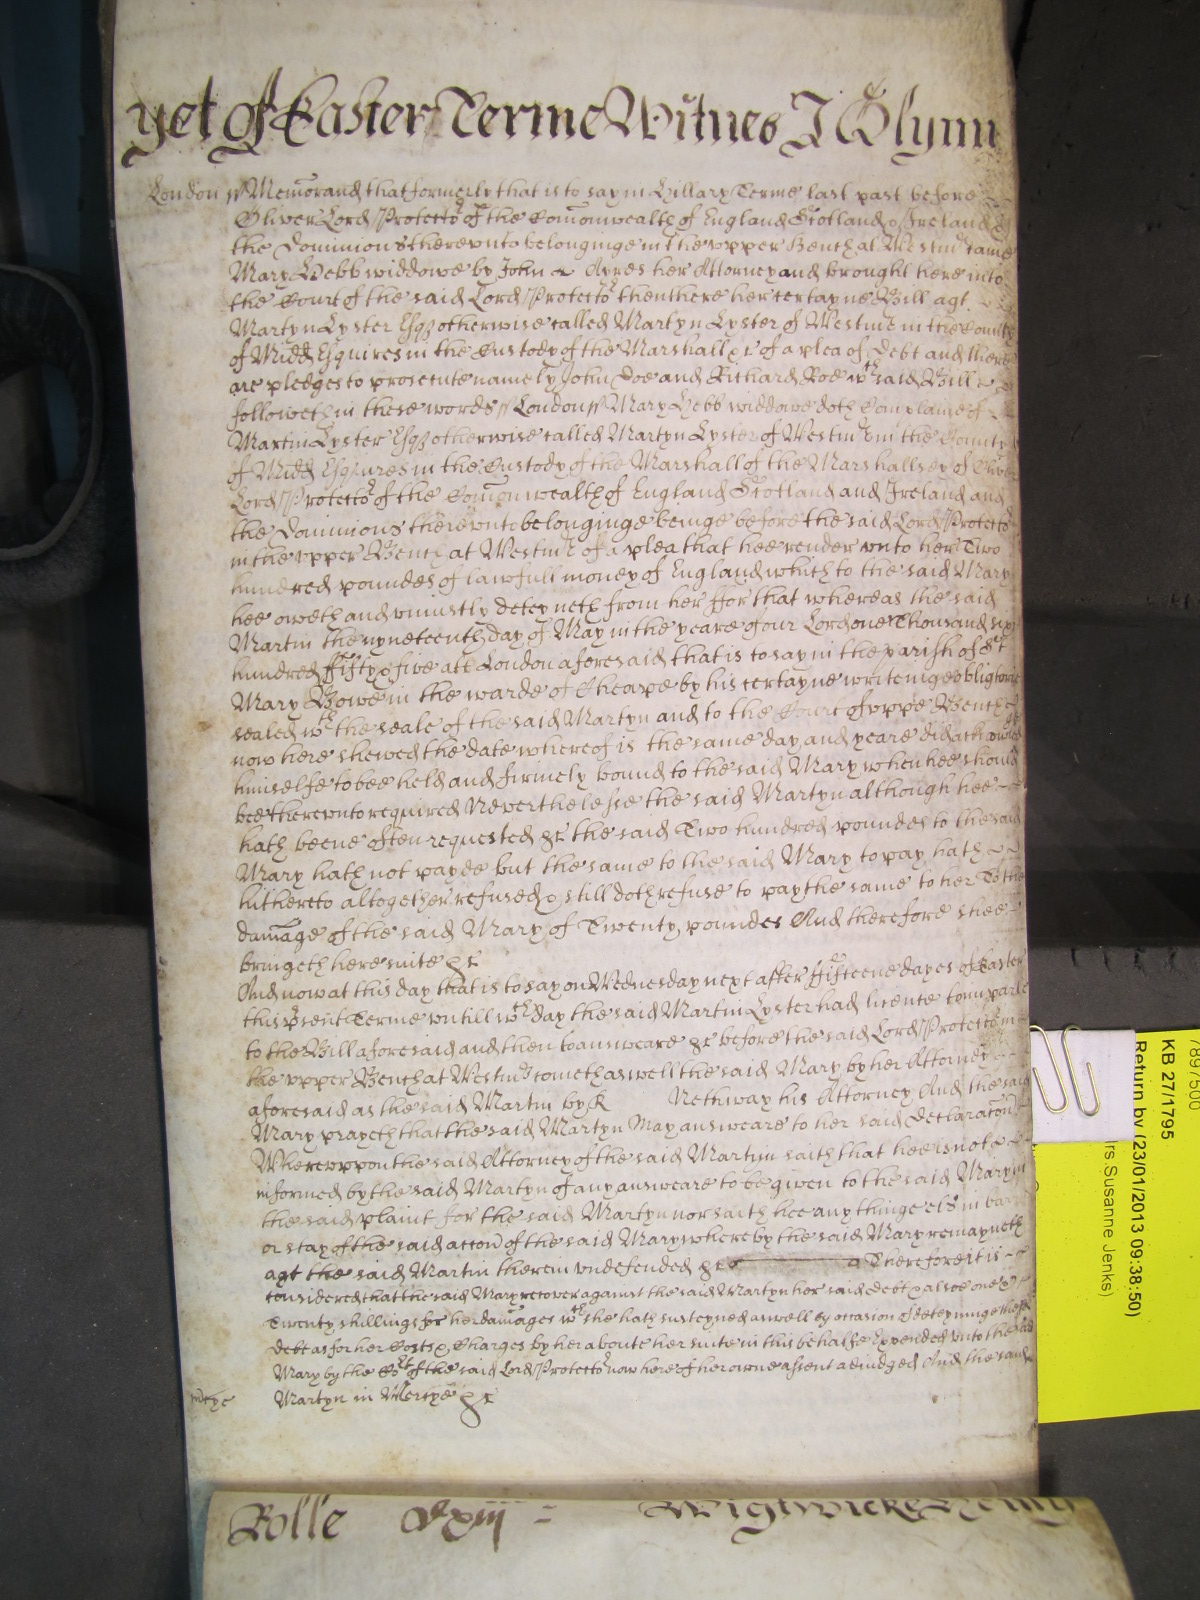 yet of Easter Terme Witnes J Glynn
London ss Memorand that formerly that is to say in Hillary Terme last past before
Oliver Lord Protector of the Comonwealth of England Scotland & Ireland &
the Dominions thereunto belonginge in the upper Bench at Westmr came
Mary Webb widdowe by John Ayres her Attorney and brought here into
the Court of the said Lord Protector then there her certayne Bill agt
Martyn Lyster Esqr otherwise called Martyn Lyster of Westmr in the County
of Midd Esquires in the Custody of the Marshall &c of a plea of Debt and there
are pledges to prosecute namely John Doe and Richard Roe wch said Bill
followeth in these words ss London ss Mary Webb widdowe doth Complaine of
Martin Lyster Esqr otherwise called Martyn Lyster of Westmr in the County
of Midd Esquires in the Custody of the Marshall of the Marshallsey of Oliver
Lord Protector of the Comonwealth of England Scotland and Ireland and
the Dominions thereunto belonginge beinge before the said Lord Protector
in the upper Bench at Westmr of a plea that hee render unto her Two
hundred poundes of lawfull money of England which to the said Mary
hee oweth and uniustly deteyneth from her ffor that whereas the said
Martin the nyneteenth day of May in the yeare of our Lord one Thousand six
hundred ffifty & five att London aforesaid that is to say in the parish of St
Mary Bowe in the warde of Cheape by his certayne writeinge obligtorie
sealed wth the seale of the said Martyn and to the Court of uppr Bench
now here shewed the date whereof is the same day and yeare did acknowled
himselfe to bee held and firmely bound to the said Mary when hee should
bee thereunto required Neverthelesse the said Martyn although hee
hath beene often requested &c the said Two hundred poundes to the said
Mary hath not payde but the same to the said Mary to pay hath
hitherto altogether refused & still doth refuse to pay the same to her To the
damage of the said Mary of Twenty poundes And therefore shee
bringeth here suite &c
And now at this day that is to say on Wednesday next after ffifteene dayes of Easter
this psent Terme untill wch day the said Martin Lyster had licence to imparle
to the Bill aforesaid and then to answeare &c before the said Lord Protector in
the upper Bench at Westmr cometh aswell the said Mary by her Attorney
aforesaid as the said Martin by R Nethway his Attorney And the said
Mary prayeth that the said Martyn May answeare to her said declaracon
Whereuppon the said Attorney of the said Martyn saith that hee is not
informed by the said Martyn of any answeare to be given to the said Mary in
the said plaint for the said Martyn nor saith hee any thinge els in barr
or stay of the said accon of the said Mary whereby the said Mary remayneth
agt the said Martin therein undefended &c Therefore it is
considered that the said Mary recover against the said Martyn her said debt & alsoe one &
Twenty shillings for her damages wch she hath susteyned aswell by occasion of deteyninge the said
debt as for her Costs & Charges by her aboute her suite in this behalfe Expended unto the said
Mary by the Cort of the said Lord Protector now here of her owne assent adiudged And the said
mcye Martyn in Mercye &c
Rolle Cxiij Wightwicke